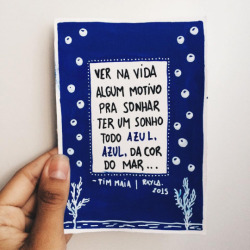 VER NA VIDA
ALGUM MOTIVO
PRA SONHAR
TER UM SONHO
TODO AZUL.
AZUL. DA COR
DO MAR...
- TIM MAIA | RAYLA.
2015